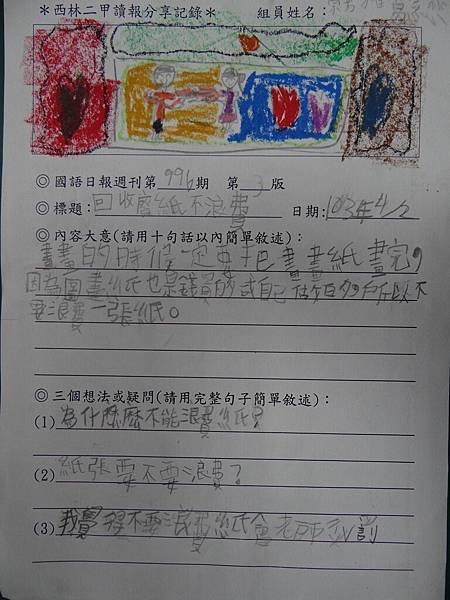 ＊西林二甲讀報分享記錄＊ 組員姓名：
◎ 國語日報週刊第 996 期 第 3 版
◎ 標題：回收廢紙不浪費 日期：103年4/2
◎ 內容大意(請用十句話以內簡單敘述)：
畫畫的時候一定要把畫畫紙畫完，
因為圖畫紙也是錢買的或自己 所以不
要浪費一張紙。
◎ 三個想法或疑問(請用完整句子簡單敘述)：
(1) 為什麼麼不能浪費紙？
(2) 紙張要不要浪費？
(3) 我 不要浪費紙會老師